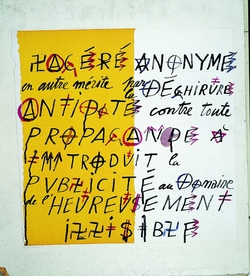 LACÉRÉ ANONYME
en autre mérite par la DÉCHIRURE
ANTIDOTE contre toute
PROPAGANDE
INTRODUIT la
PUBLICITÉ au Domaine
de l'HEUREUSEMENT
ILLISIBLE